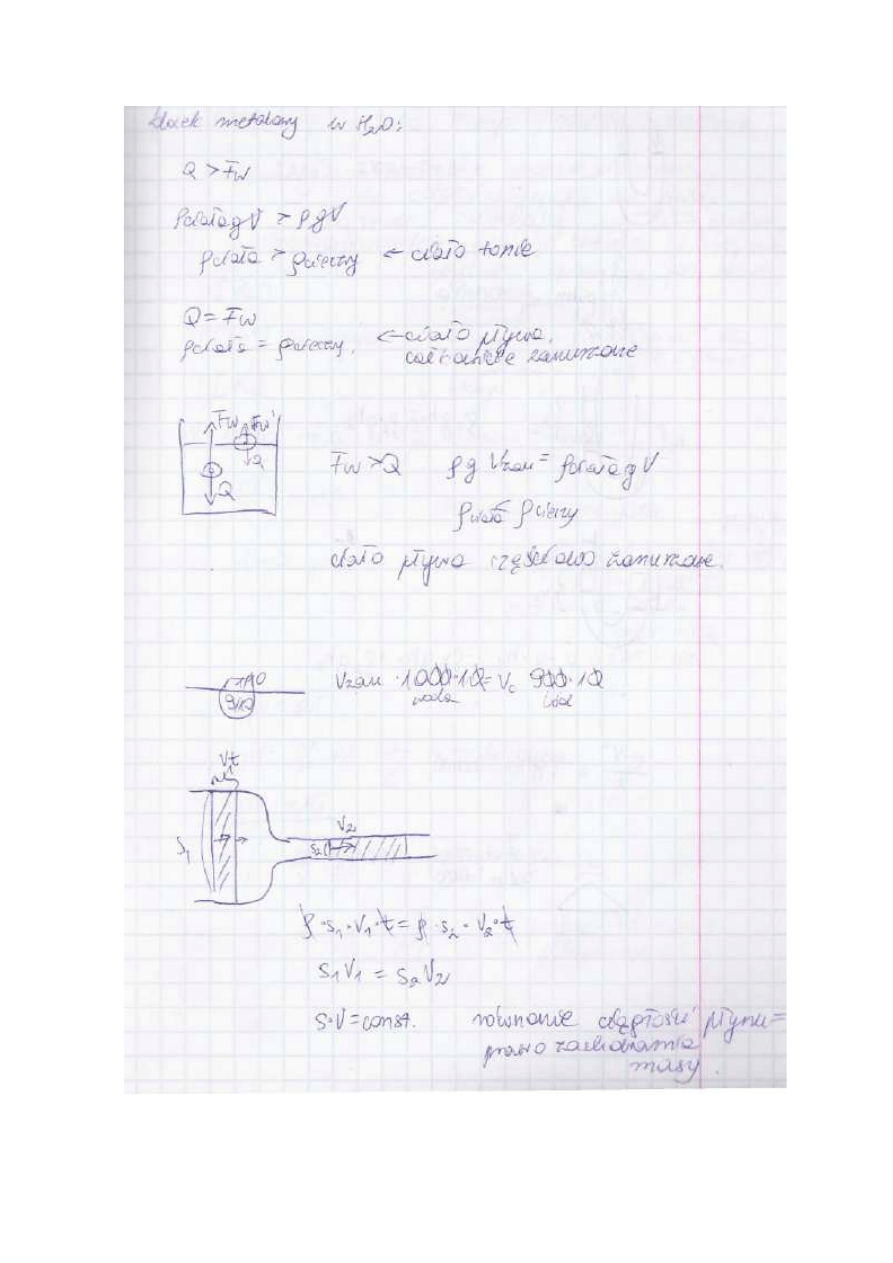 klocek metalowy w H₂O:
Q > Fw
ρciała g V > ρ g V
ρciała > ρcieczy ← ciało tonie
Q = Fw
ρciała = ρcieczy. ← ciało pływa,
całkowicie zanurzone
Fw Fw'
Q
Q
Fw > Q ρ g Vzan = ρciała g V
ρciała < ρcieczy
ciało pływa częściowo zanurzone.
Vzan · 1000 · 10 = Vc 900 · 10
woda lód
V₁t
S₁ S₂ V₂
ρ · S₁ · V₁ · t = ρ · S₂ · V₂ · t
S₁V₁ = S₂V₂
S · V = const. równanie ciągłości płynu =
prawo zachowania
masy.